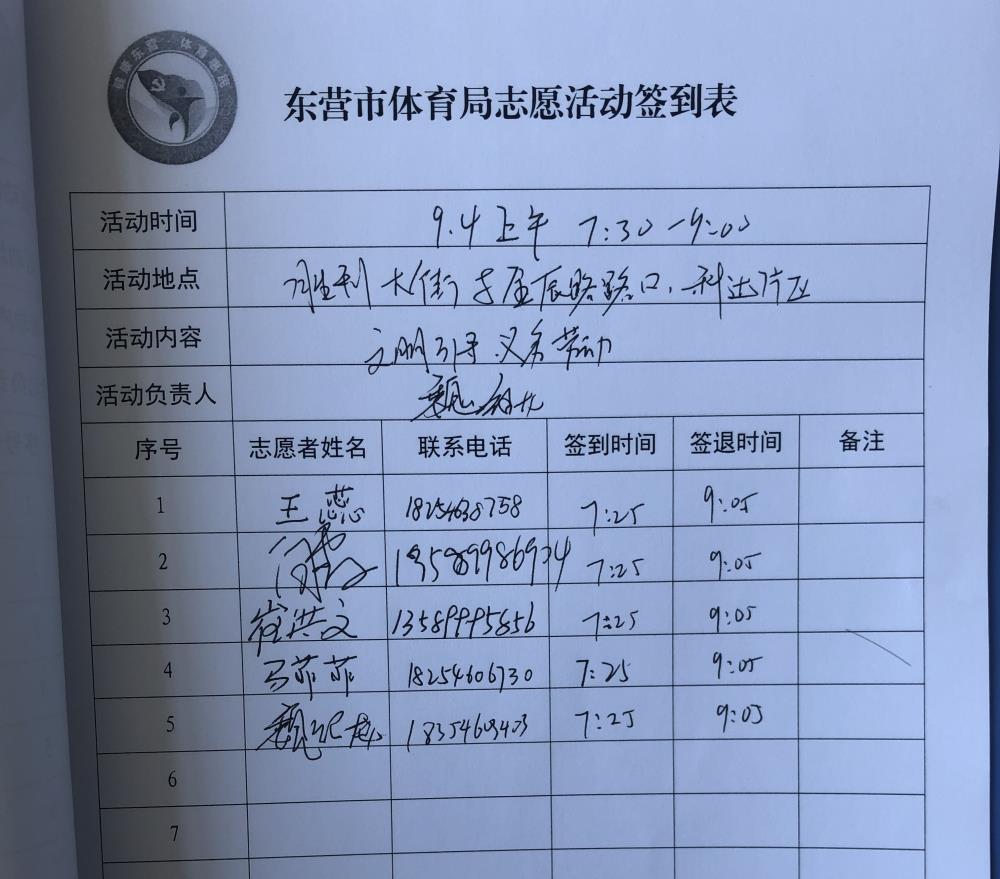 健康东营 体育惠民
东营市体育局志愿活动签到表
活动时间 9.4 上午 7:30-9:00
活动地点 胜利大街与 路路口、科达片区
活动内容 文明引导 义务劳动
活动负责人 魏
序号 志愿者姓名 联系电话 签到时间 签退时间 备注
1 王蕊 18254638758 7:25 9:05
2 7:25 9:05
3 崔洪文 13589995856 7:25 9:05
4 马菲菲 18254606730 7:25 9:05
5 魏 7:25 9:05
6
7